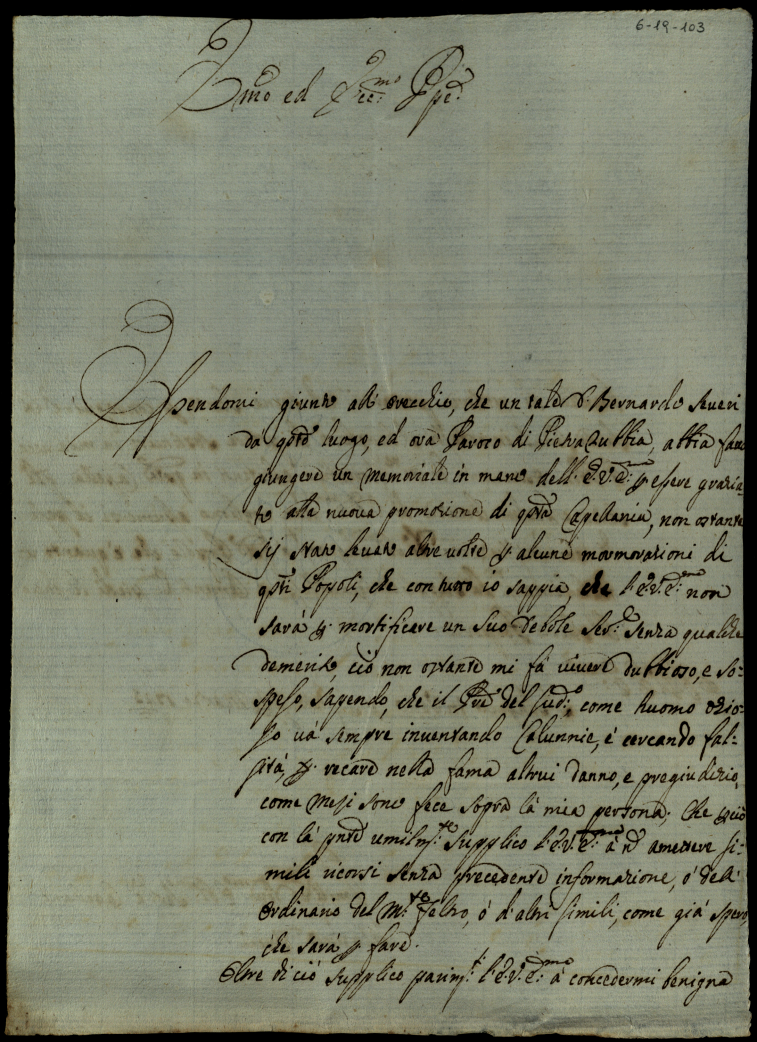 6-19-103
Emo ed Ecc:mo Ppe:
Essendomi giunto all' orecchio, che un tale D. Bernardo Severi
da qsto luogo, ed ora Paroco di Pietra Rubbia, abbia fatto
giungere un memoriale in mano dell' E. V. E:ma p essere grazia-
to alla nuova promozione di qsta Capellania, non ostante
sij stato levato altre volte p alcune mormorazioni di
qsti Popoli, che con tutto io sappia, che l' E. V. E:ma non
sarà p. mortificare un suo debole Ser:e senza qualche
demerito, ciò non ostante mi fà vivere dubbioso, e so-
speso, sapendo, che il Pre del sud:o come huomo ozio-
so và sempre inventando Calunnie, e cercando fal-
sità, p. recare nella fama altrui danno, e pregiudizio,
come mesi sono fece sopra la mia persona; Che p ciò
con la pnte umilm:te supplico l' E. V. E:ma à nò amettere si-
mili ricorsi senza precedente informazione, ò dell'
Ordinario del M:te Feltro, ò d'altri simili, come già spero,
che sarà p fare.
Oltre di ciò supplico parim:te l' E. V. E:ma à concedermi benigna